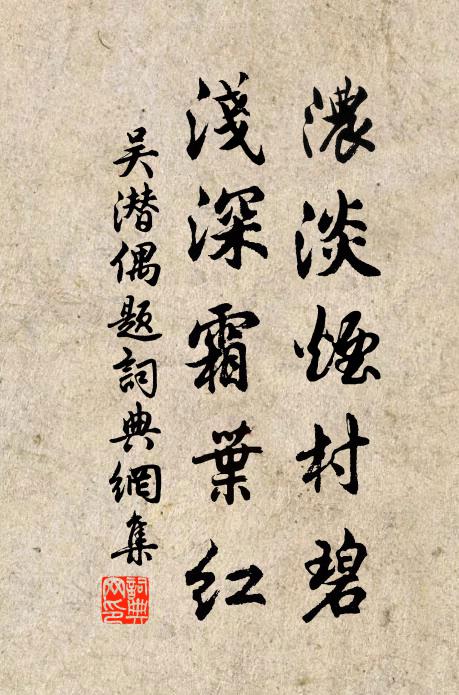 濃淡煙村碧
淺深霜葉紅
吴潜偶题詞典網集
詞典網印